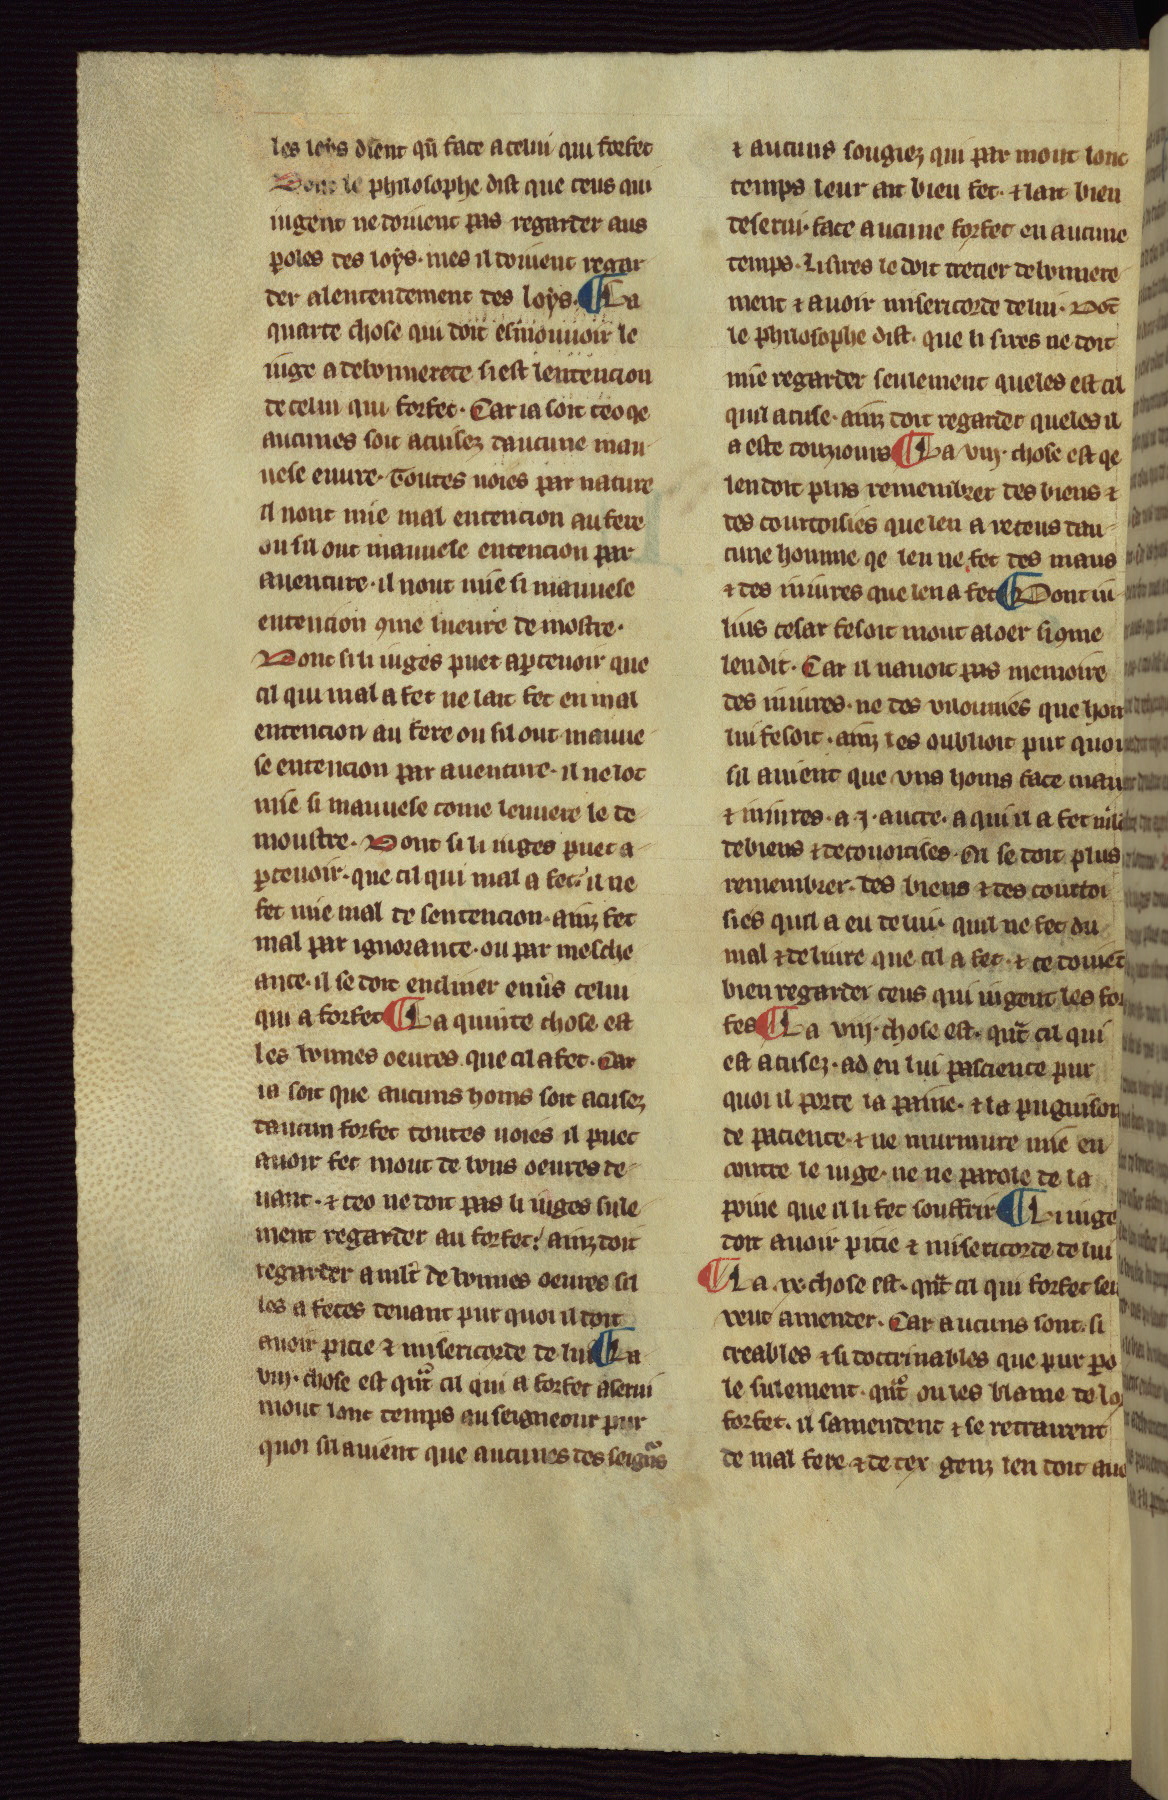 les loys dient qͥl face a celui qui forfet
Dont le philosophe dist que ceus qui
iugent ne doiuent pas regarder aus
ꝑoles des loys. mes il doiuent regar
der a lentendement des loys. ¶ La
quarte chose qui doit esmouuoir le
iuge a debonnerete si est lentencion
de celui qui forfet. Car ia soit ceo qe
aucunes soit acuisez daucune mau
uese euure. Toutes uoies par nature
il nont mie mal entencion au fere
ou sil ont mauuese entencion par
auenture. il nont mie si mauuese
entencion ꝯme lueure demostre.
Dont si li iuges puet aꝑceuoir que
cil qui mal a fet ne lait fet en mal
entencion au fere ou sil out mauue
se entencion par auenture. il ne lot
mie si mauuese come leuuere le de
moustre. Dont si li iuges puet a
ꝑceuoir. que cil qui mal a fet. il ne
fet mie mal de sentencion. ainz fet
mal par ignorance. ou par mesche
ance. il se doit encliner enu̾s celui
qui a forfet ¶ La quinte chose est
les bonnes oeures que cil a fet. Car
ia soit que aucuns homs soit acusez
daucun forfet toutes uoies il puet
auoir fet mout de bons oeures de
uant. ⁊ ceo ne doit pas li iuges sule
ment regarder au forfet. ainz doit
regarder a mlt̄ de bonnes oeures sil
les a fetes deuant pur quoi il doit
auoir pitie ⁊ misericorde de lui ¶ La
vııȷ. chose est qn̄t cil qui a forfet a serui
mout lonc temps au seigneour pur
quoi sil auient que aucunes des seign̄s
⁊ aucuns sougiez qui par mout lonc
temps leur ait bien fet. ⁊ lait bien
deserui. face aucune forfet en aucune
temps. Li sires le doit tretier debonnere
ment ⁊ auoir misericorde de lui. Dōt
le philosophe dist. que li sires ne doit
mie regarder seulement queles est cil
quil acuse. ainz doit regarder queles il
a este touziours ¶ La vııȷ. chose est qe
len doit plus remembrer des biens ⁊
des courtoisies que len a receus dau
cune homme qe len ne fet des maus
⁊ des iniures que len a fet ¶ Dont iu
lius cesar fesoit mout a loer si ꝯme
len dit. Car il nauoit pas memoire
des iniures. ne des vilounies que hom
lui fesoit. ainz les oublioit pur quoi
sil auient que vns homs face mau
⁊ iniures. a .ȷ. autre. a qui il a fet ml̄t
de biens ⁊ de couortises. Cil se doit plus
remembrer. des biens ⁊ des courtoi
sies quil a eu de lui. quil ne fet du
mal ⁊ de liure que cil a fet. ⁊ ce doiuēt
bien regarder ceus qui iugent les for
fes ¶ La vııȷ. chose est. qn̄t cil qui
est acusez. ad en lui pascience pur
quoi il porte la paine. ⁊ la puguison
de pacience. ⁊ ne murmure mie en
contre le iuge. ne ne parole de la
poine que il li fet souffrir ¶ Li iuge
doit auoir pitie ⁊ misericorde de lui
¶ La .ıx. chose est. qn̄t cil qui forfet sen
veut amender. Car aucuns sont si
creables ⁊ si doctrinables que pur ꝑo
le sulement. qn̄t ou les blame de lor
forfet. il samendent ⁊ se retraient
de mal fere ⁊ de tex genz len doit aue